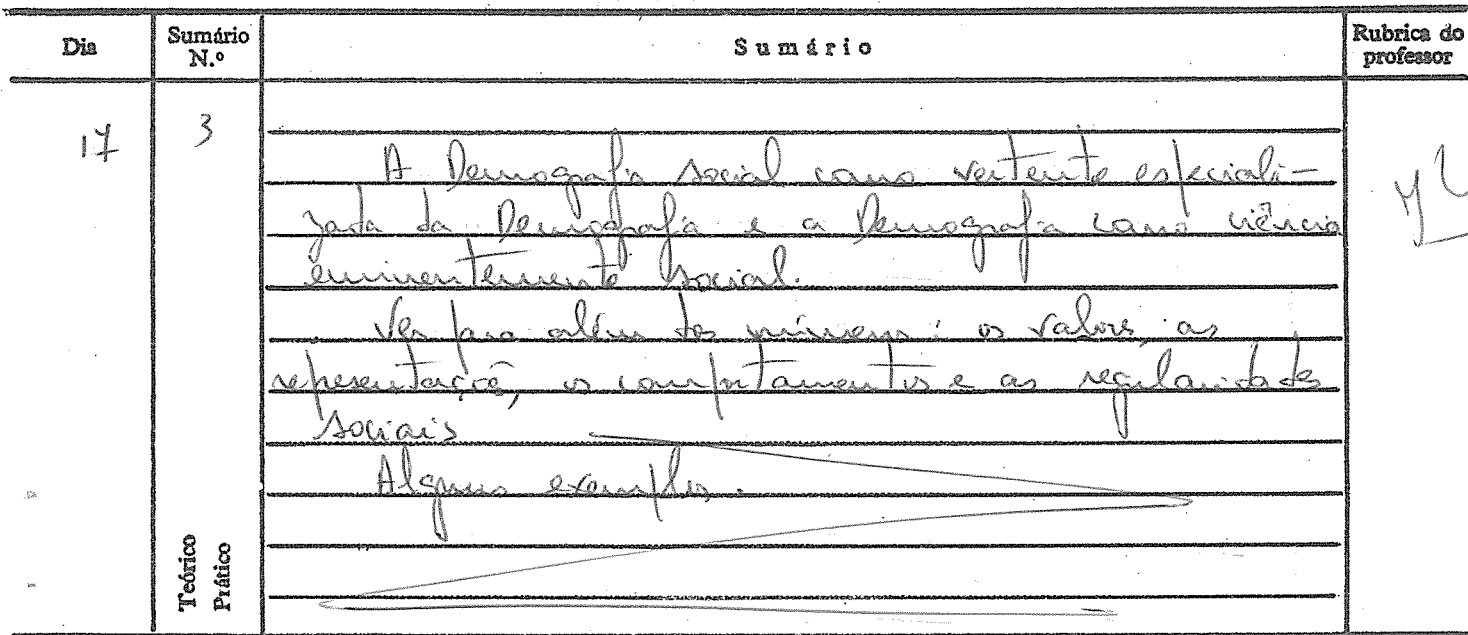 Dia
Sumário N.º
Sumário
Rubrica do professor
17
3
A Demografia social como vertente especiali-
zada da Demografia e a Demografia como ciência
eminentemente social.
Ver para além dos números: os valores, as
representações, os comportamentos e as regularidades
sociais
Alguns exemplos.
Teórico
Prático